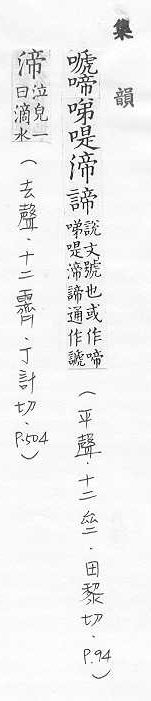 集韻
嗁啼啼唬渧諦說文號也或作啼㖒唬渧諦通作謕
（平聲．十二㘝．田黎切．P.94）
渧泣皃一曰滴水
（去聲．十二霽．丁計切．P.504）